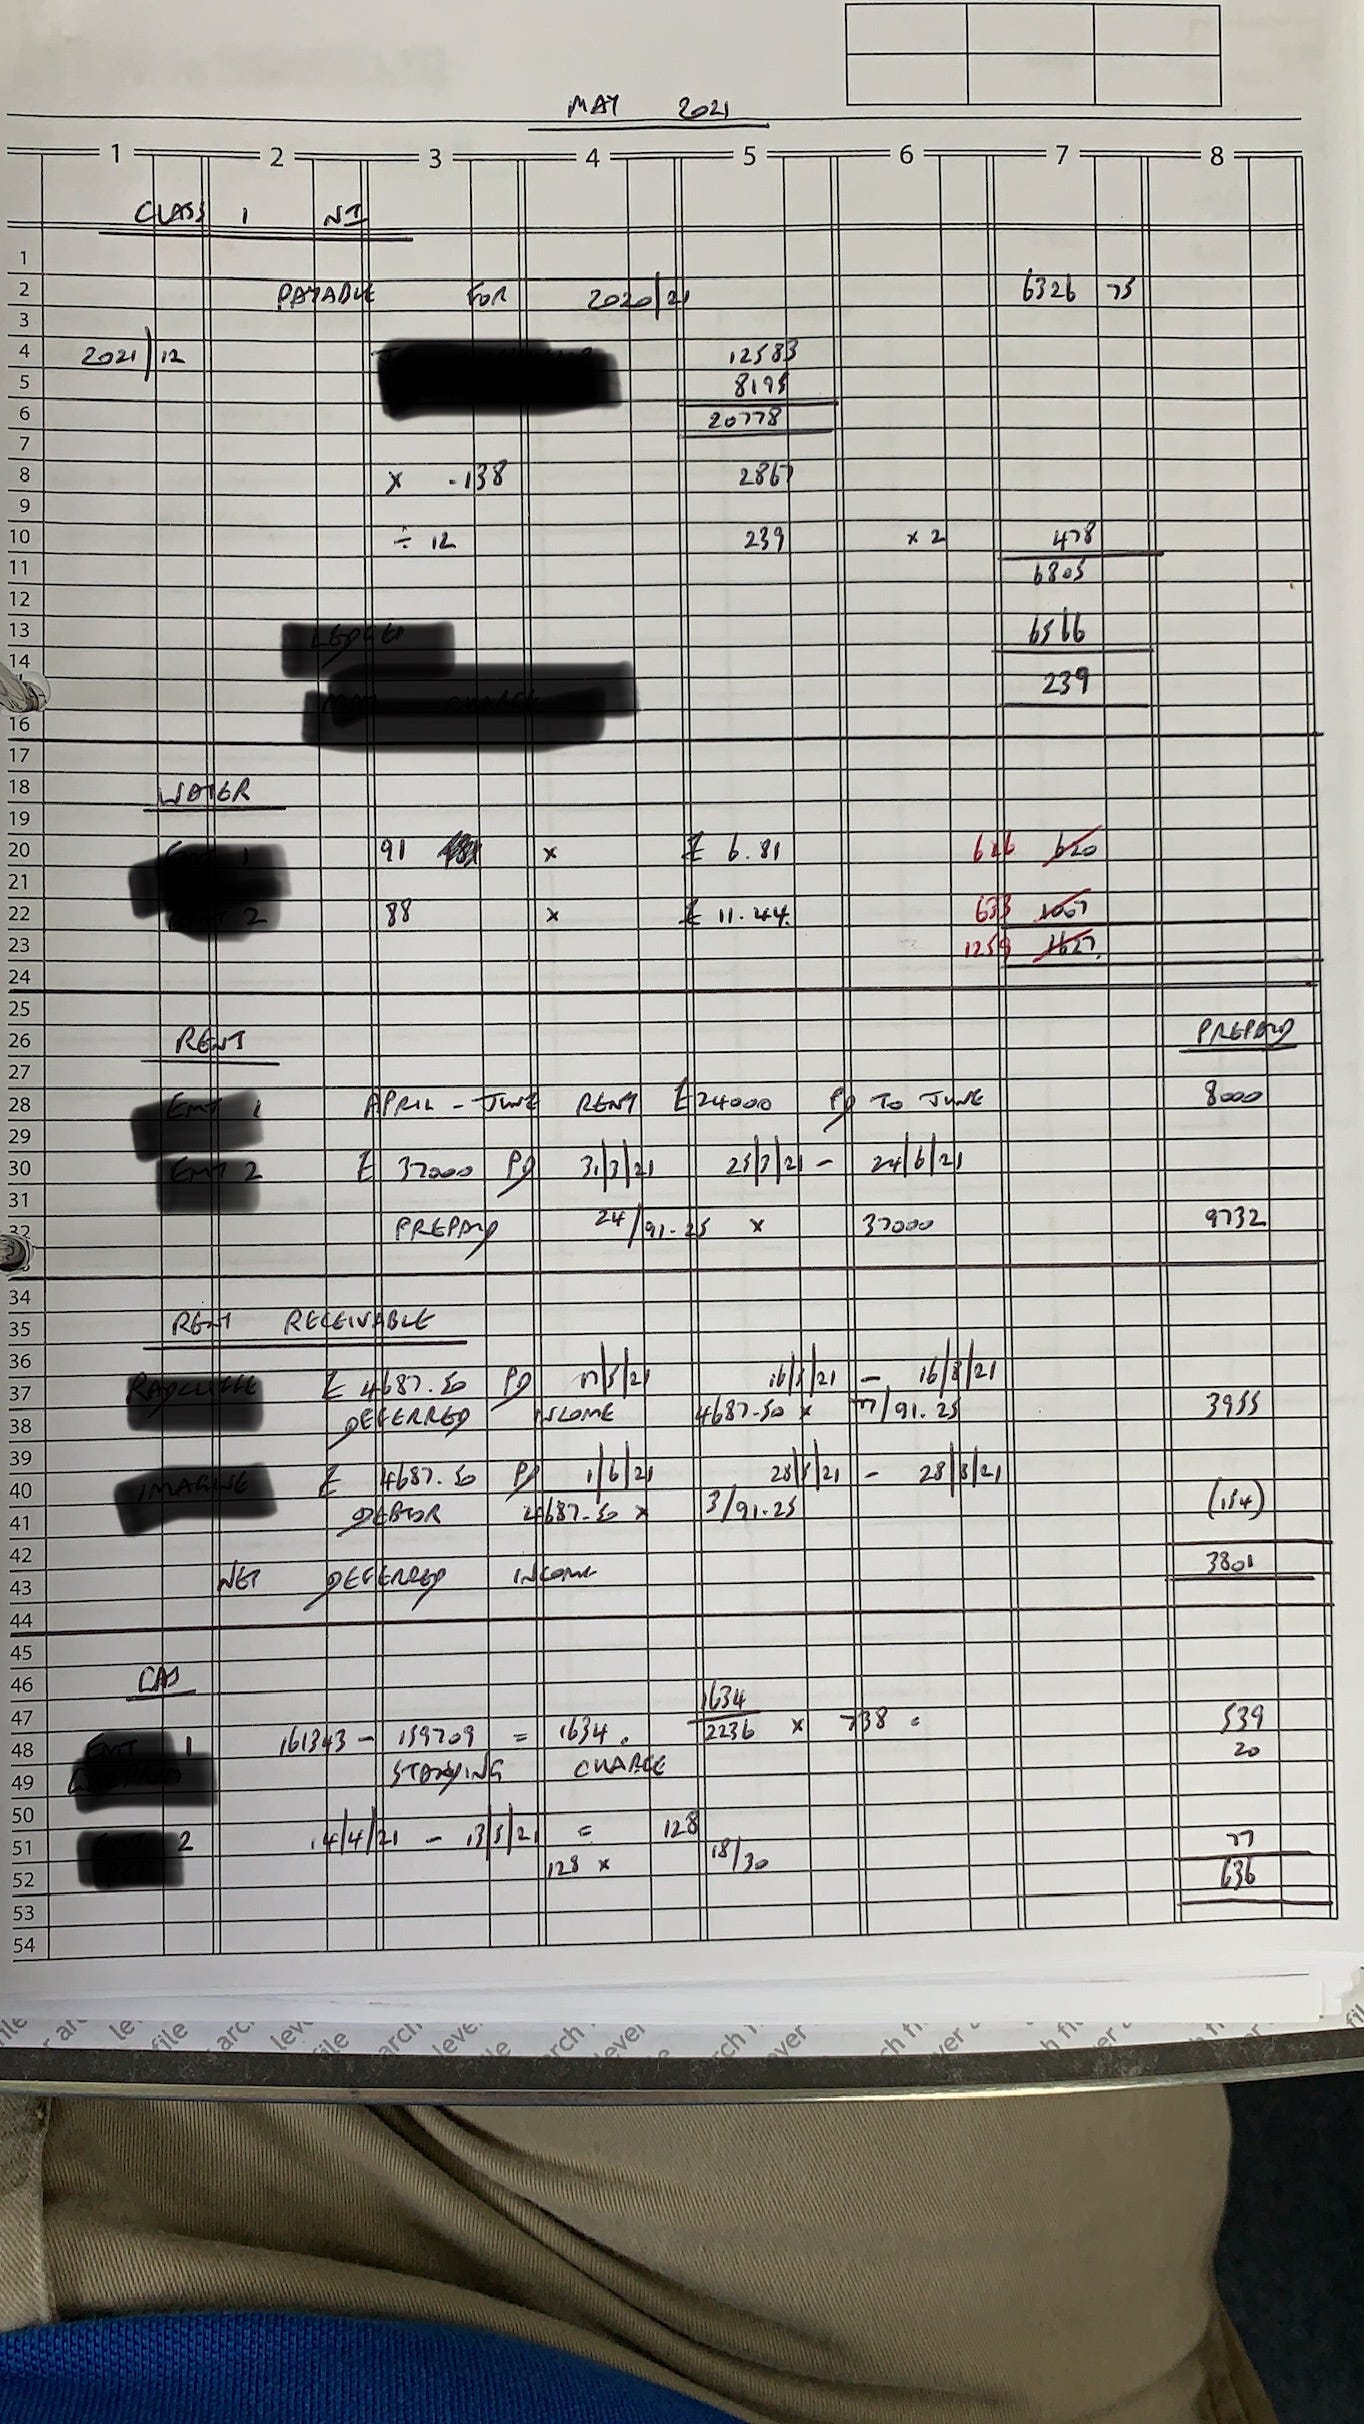 MAY 2021
1 2 3 4 5 6 7 8
CLASS 1 NI
1
2 PAYABLE FOR 2020/21 6326 75
3
4 2021/12 12583
5 8195
6 20778
7
8 x .138 2867
9
10 ÷ 12 239 x 2 478
11 6805
12
13 6566
14
239
16
17
18 WATER
19
20 1 91 x £ 6.81 626 620
21
22 2 88 x £ 11.44 633 1007
23 1259 1627
24
25
26 RENT PREPAID
27
28 EMT 1 APRIL - JUNE RENT £24000 PD TO JUNE 8000
29
30 EMT 2 £ 37000 PD 31/3/21 25/3/21 - 24/6/21
31
32 PREPAID 24/91.25 x 37000 9732
34
35 RENT RECEIVABLE
36
37 RADCLIFFE £ 4687.50 PD 17/5/21 16/5/21 - 16/8/21
38 DEFERRED INCOME 4687.50 x 77/91.25 3955
39
40 IMAGINE £ 4687.50 PD 1/6/21 28/5/21 - 28/8/21
41 DEBTOR 4687.50 x 3/91.25 (154)
42
43 NET DEFERRED INCOME 3801
44
45
46 GAS
47
48 EMT 1 161343 - 159709 = 1634. 1634/2236 x 738 = 539
49 STANDING CHARGE 20
50
51 2 14/4/21 - 13/5/21 = 128
52 128 x 18/30 77
53 636
54
arch file
lever